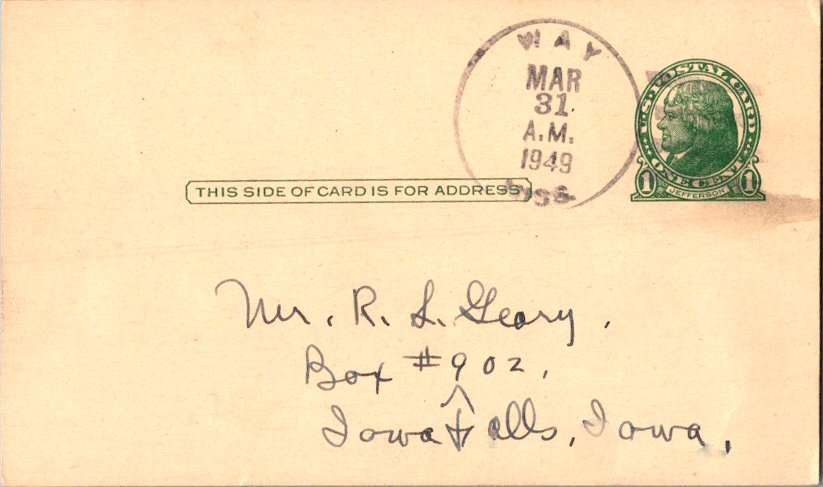 WAY
MAR
31
A.M.
1949
MISS.
U.S. POSTAL CARD
ONE CENT
1 JEFFERSON 1
THIS SIDE OF CARD IS FOR ADDRESS
Mr. R. L. Geary.
Box #902,
Iowa Falls, Iowa,